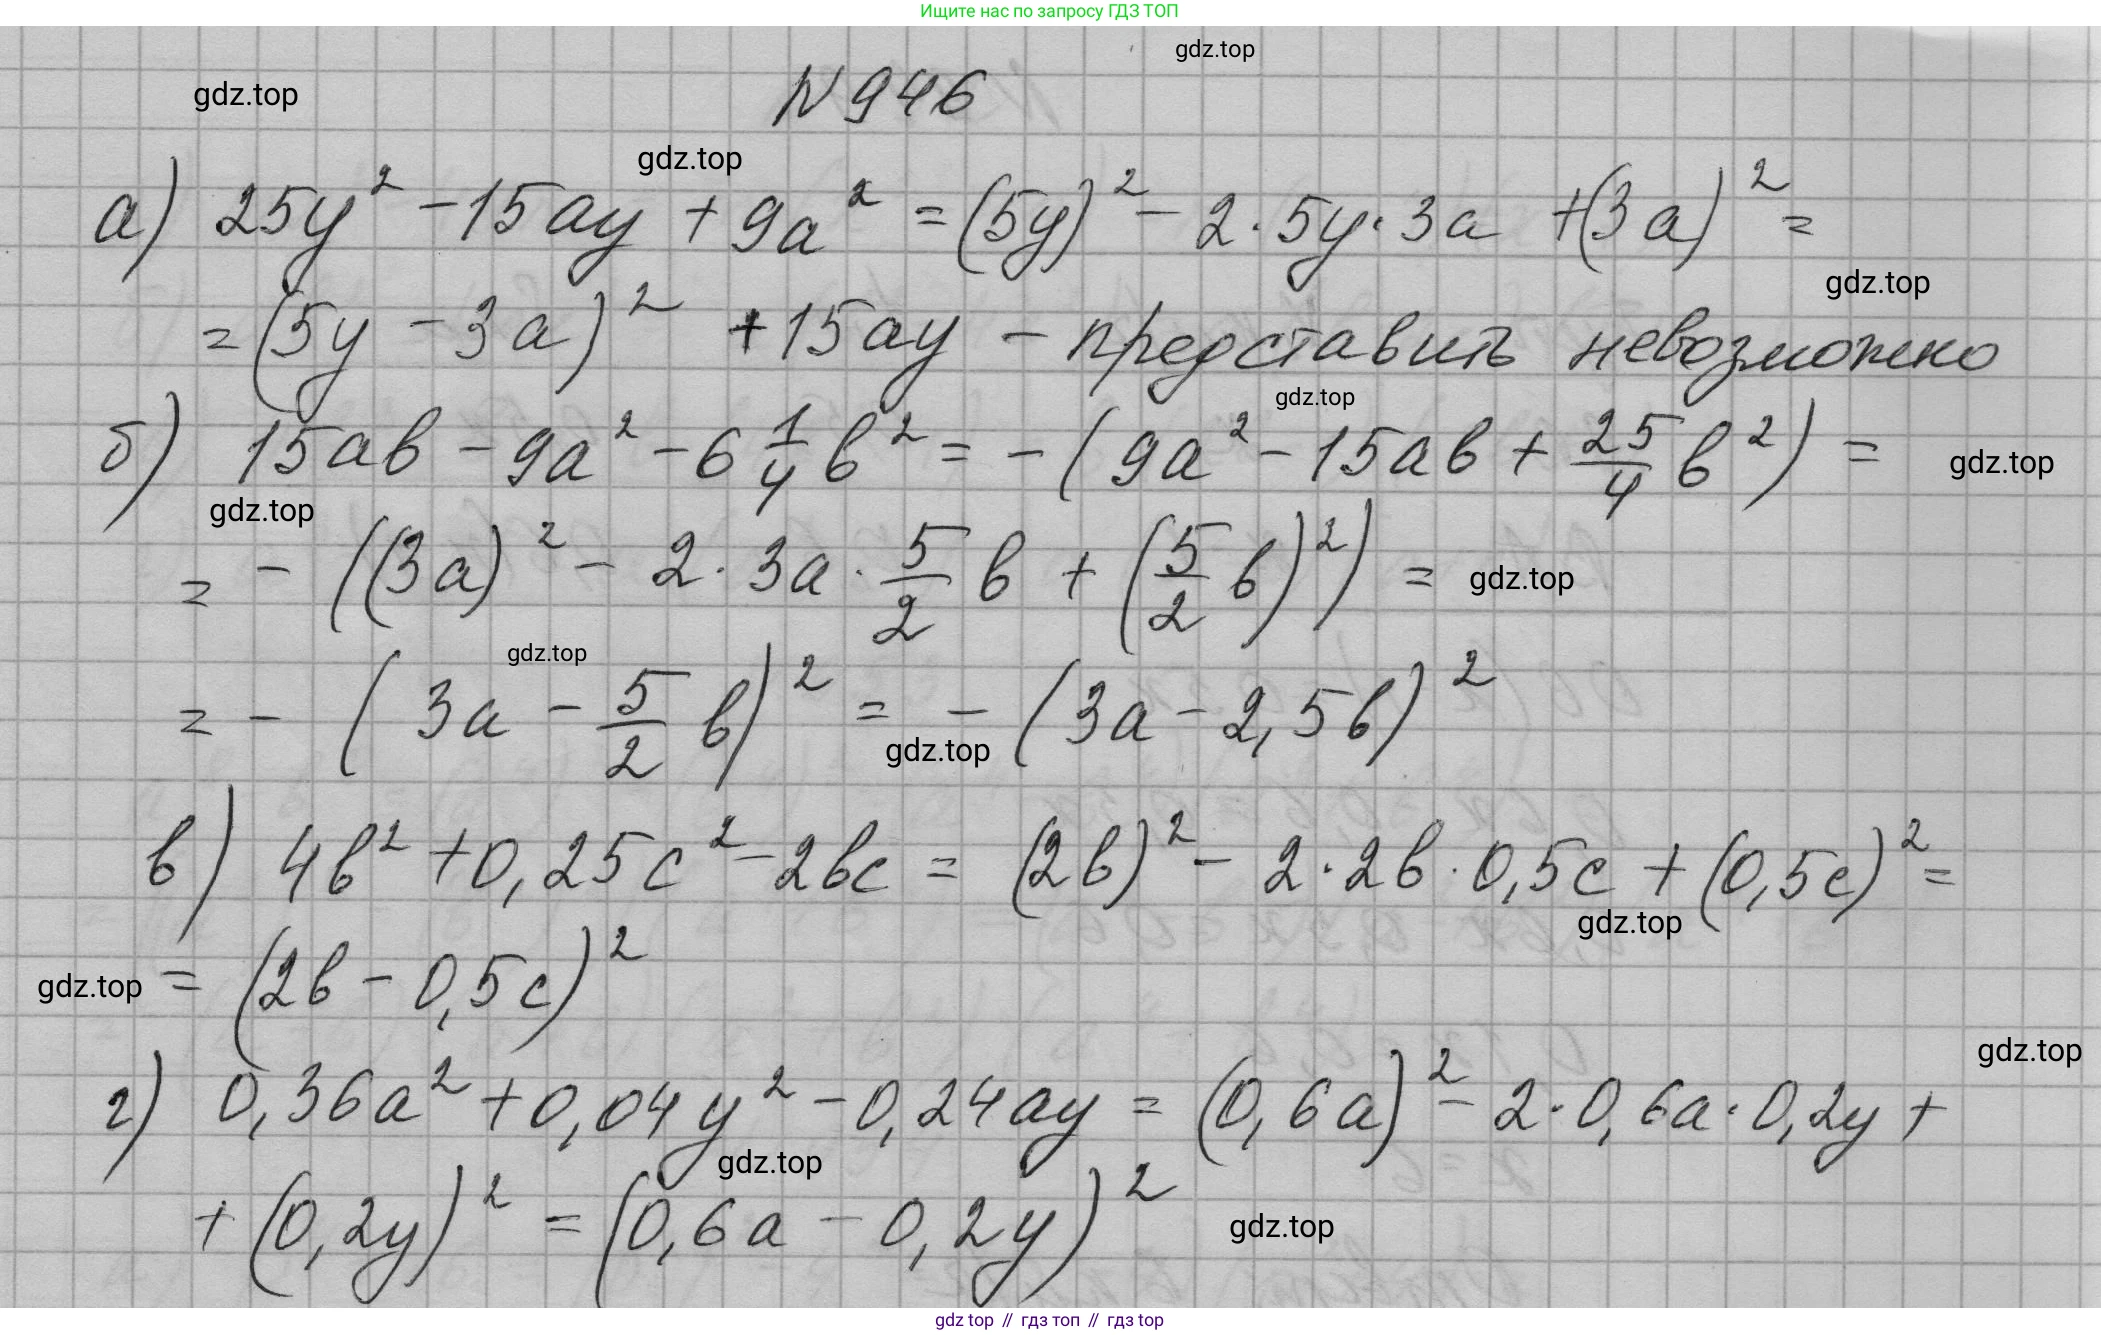 Ищите нас по запросу ГДЗ ТОП
gdz.top
gdz.top
N 946
gdz.top
а) 25y² - 15ay + 9a² = (5y)² - 2·5y·3a + (3a)² =
gdz.top
= (5y - 3a)² + 15ay - представить невозможно
gdz.top
б) 15ab - 9a² - 6 1/4 b² = - (9a² - 15ab + 25/4 b²) =
gdz.top
gdz.top
= - ((3a)² - 2·3a·5/2 b + (5/2 b)²) =
gdz.top
gdz.top
= - (3a - 5/2 b)² = - (3a - 2,5b)²
gdz.top
в) 4b² + 0,25c² - 2bc = (2b)² - 2·2b·0,5c + (0,5c)² =
gdz.top
= (2b - 0,5c)²
gdz.top
gdz.top
г) 0,36a² + 0,04y² - 0,24ay = (0,6a)² - 2·0,6a·0,2y +
gdz.top
+ (0,2y)² = (0,6a - 0,2y)²
gdz.top
gdz top // гдз топ // gdz top